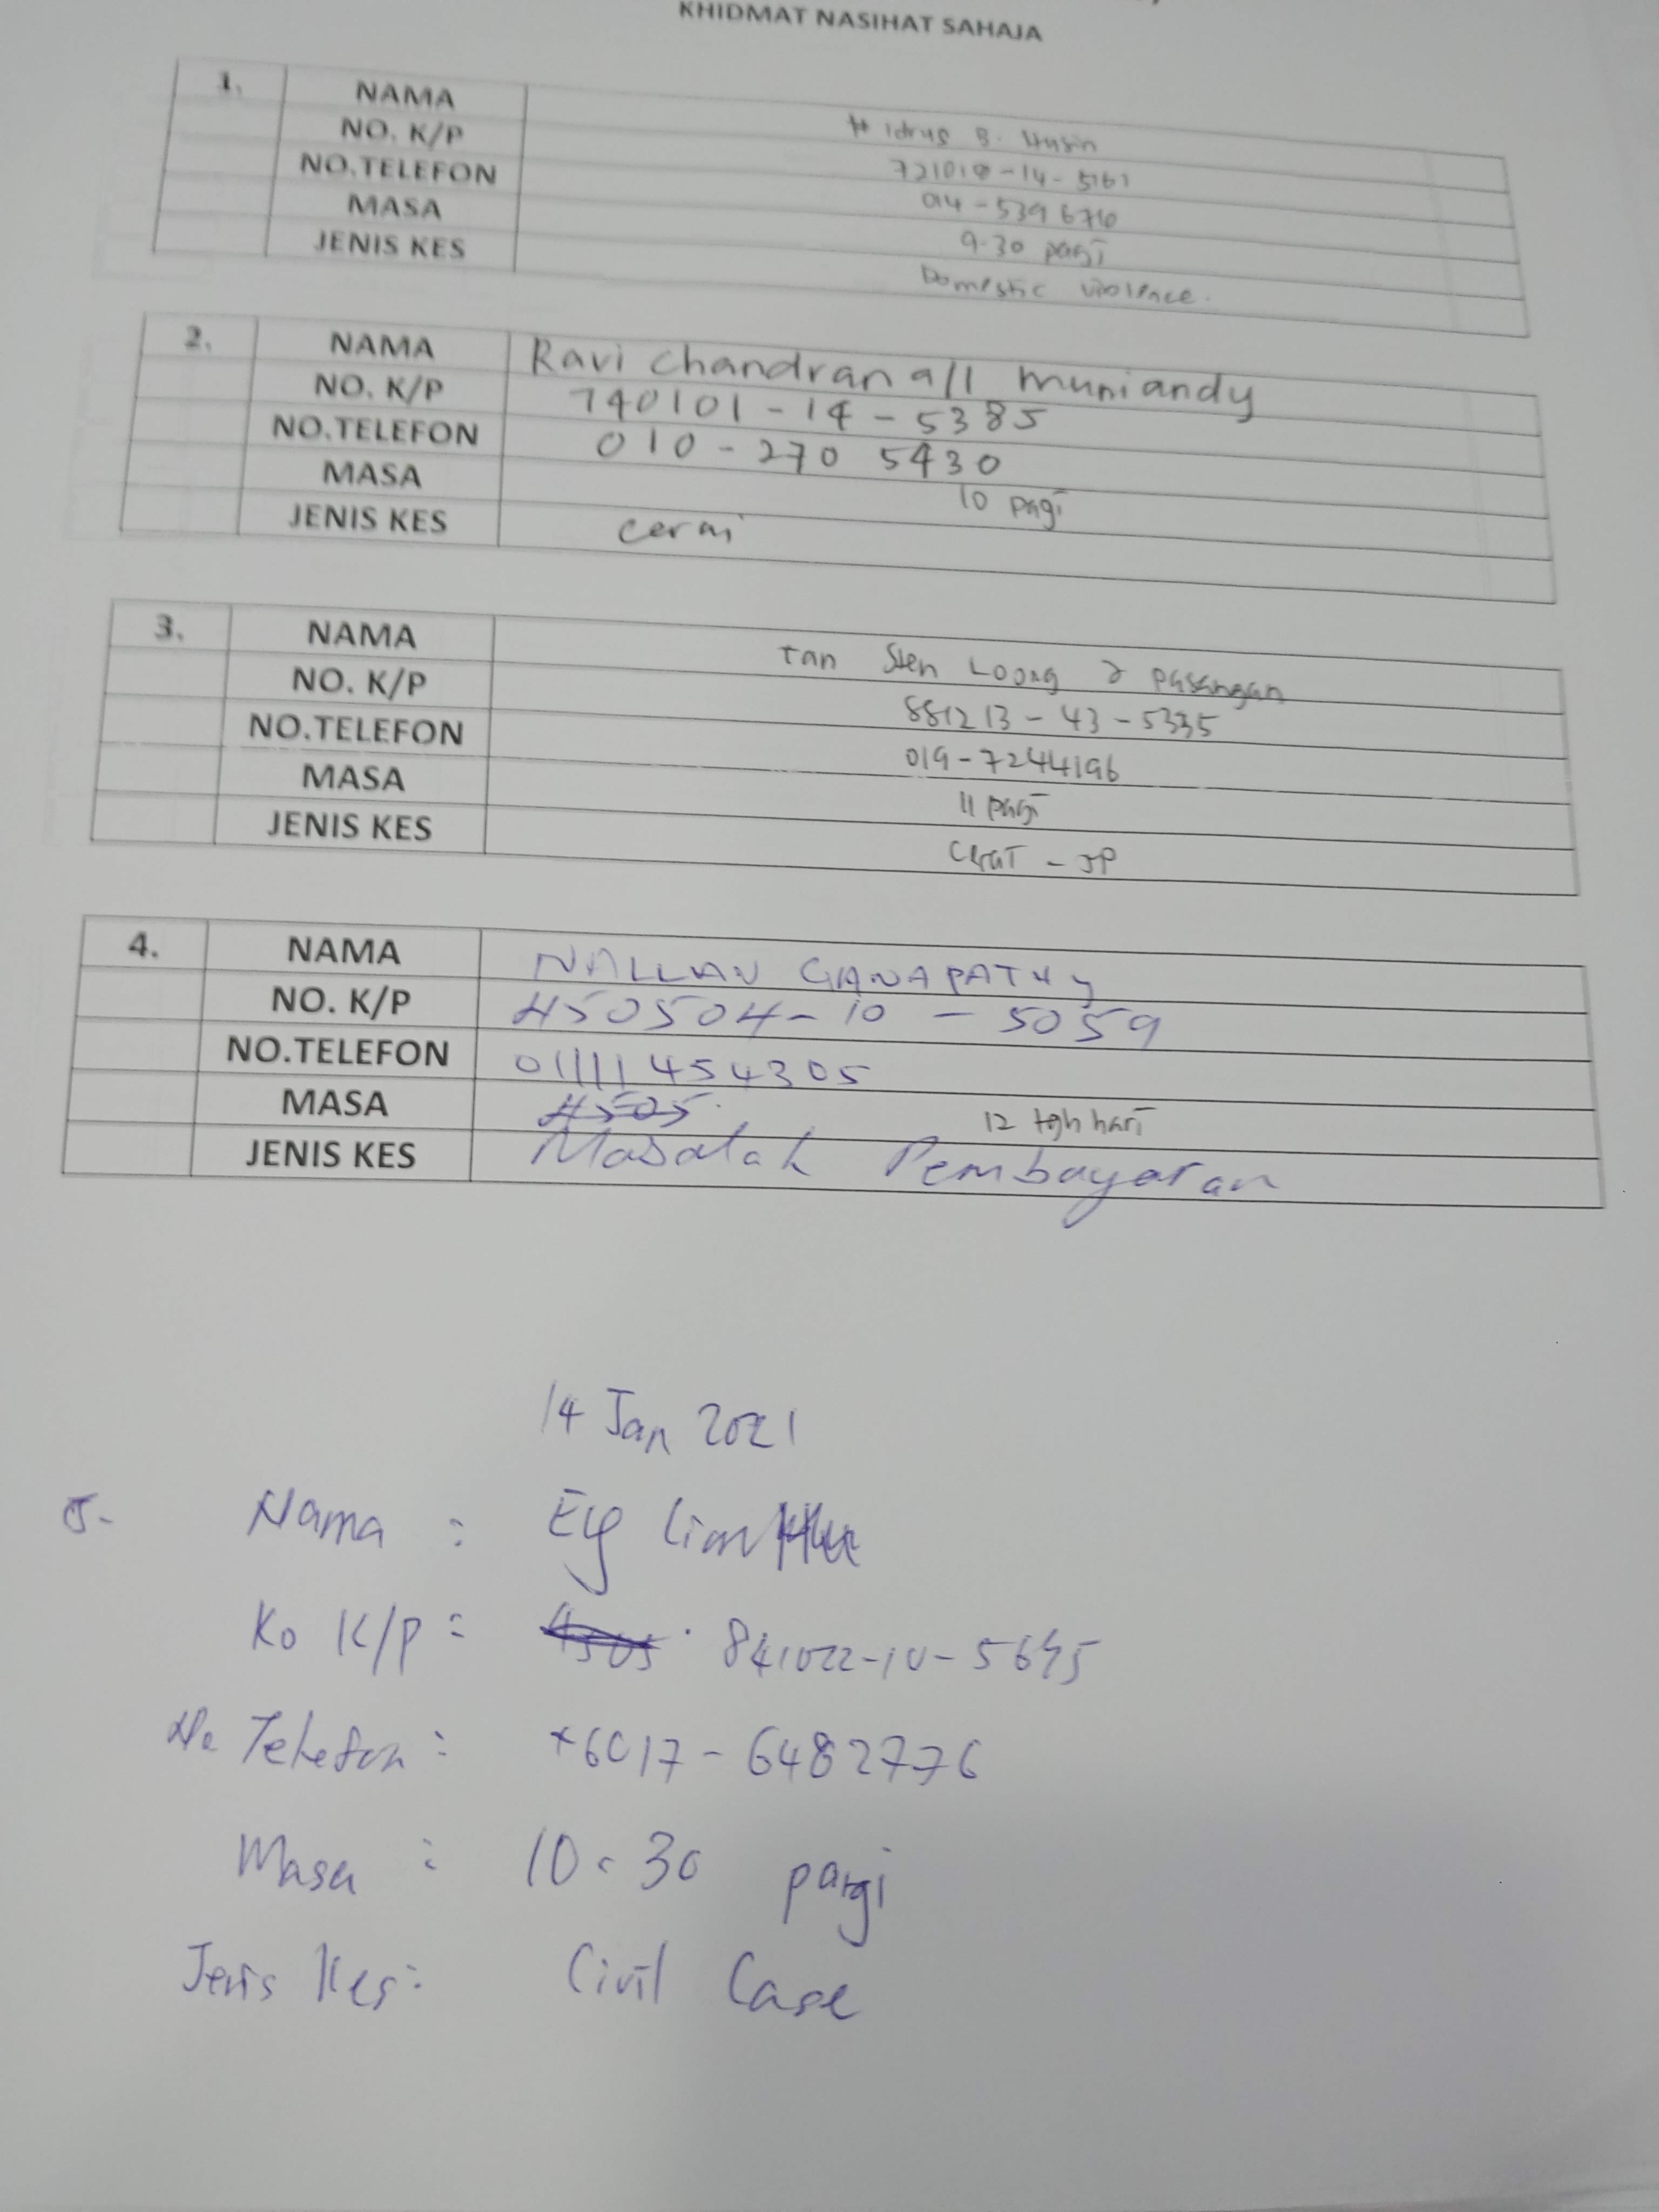 KHIDMAT NASIHAT SAHAJA
1. NAMA # Idrus B. Husin
NO. K/P 721018-14-5161
NO.TELEFON 014-539 6716
MASA 9.30 pagi
JENIS KES Domestic violence.
2. NAMA Ravi Chandran a/l muniandy
NO. K/P 740101-14-5385
NO.TELEFON 010-270 5430
MASA 10 pagi
JENIS KES cerai
3. NAMA Tan Loong & pasangan
NO. K/P 881213-43-5335
NO.TELEFON 019-7244196
MASA 11 pagi
JENIS KES Cerai - JP
4. NAMA NALLAN GANAPATHY
NO. K/P 450504-10-5059
NO.TELEFON 01111454305
MASA 4505. 12 tgh hari
JENIS KES Masalah Pembayaran
14 Jan 2021
5. Nama : Lim
No K/P : 4505 . 841022-10-5645
No Telefon : +6017-6482776
Masa : 10.30 pargi
Jenis Kes: Civil Case